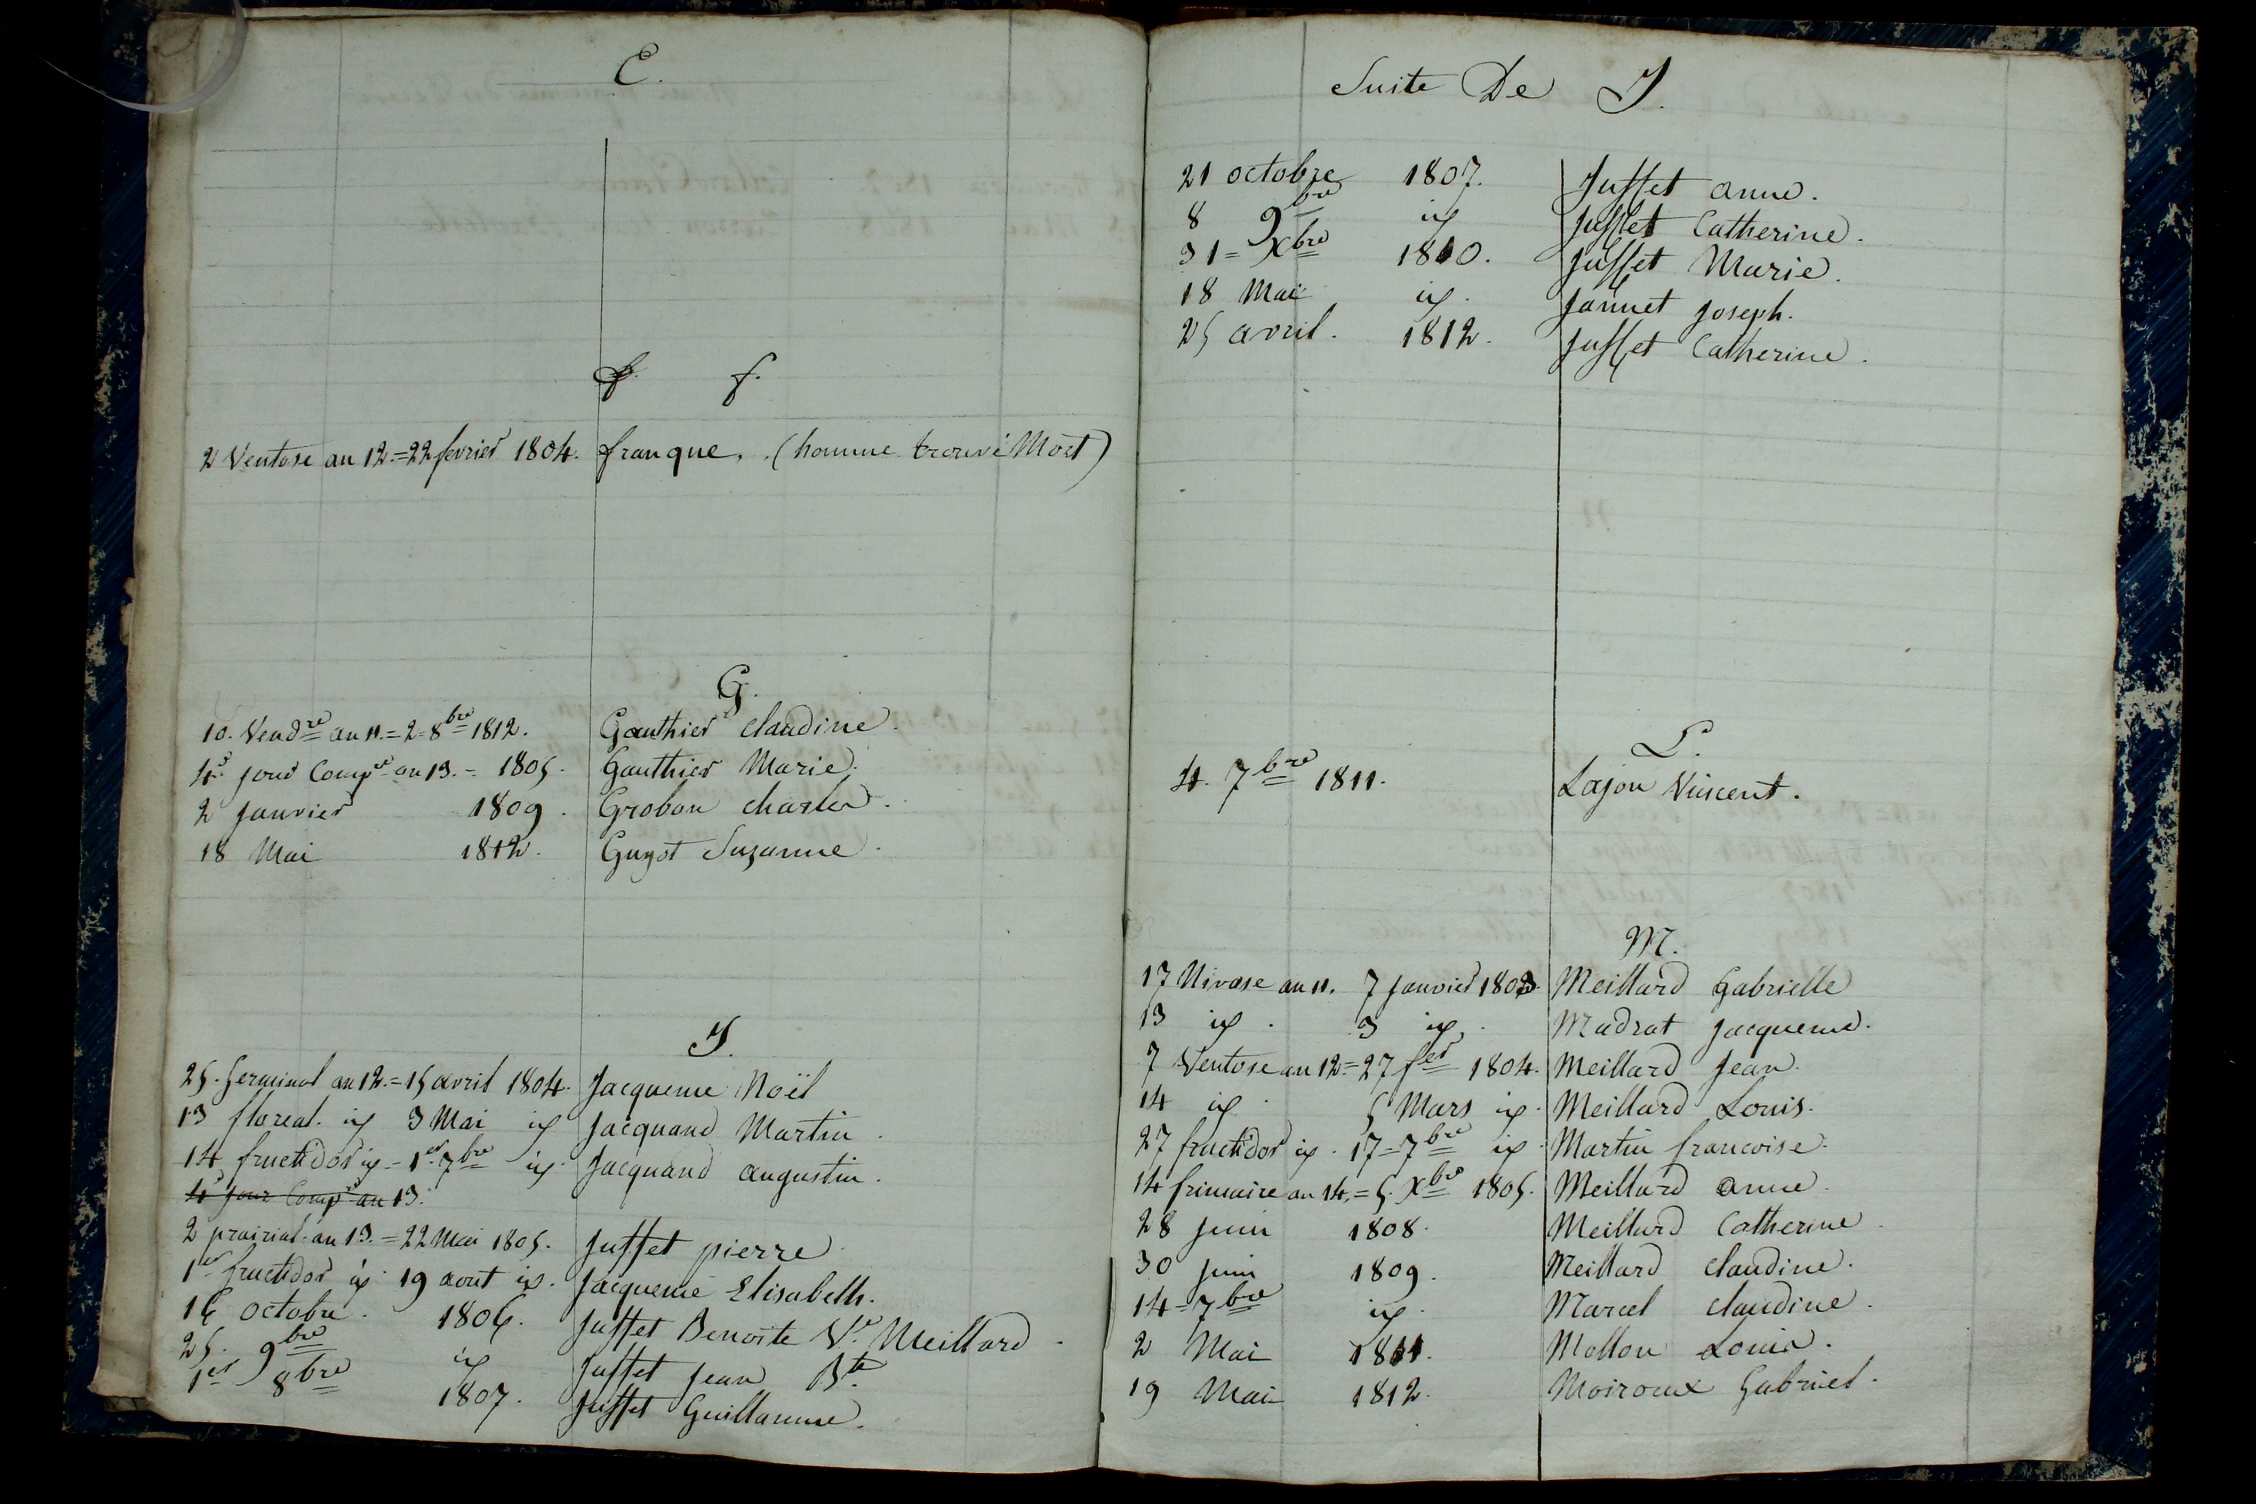 E.
f. f.
2 Ventose an 12.=22 fevrier 1804. franque. (homme trouvé Mort)
G.
10. Vendre an 11.=2=8bre 1812. Gauthier claudine.
4e jour Compre an 13.= 1805. Gauthier Marie.
2 janvier 1809. Grobon charles.
18 Mai 1812. Guyot Suzanne.
J.
25. Germinal an 12.=15 avril 1804. Jacqueme Noël
13 floreal. id 3 Mai id Jacquand Martin.
14 fructidor id = 1er 7bre id. Jacquand augustin.
4e jour Compre an 13.
2 prairial. an 13.=22 Mai 1805. Juffet pierre.
1er fructidor id. 19 aout id. Jacqueme Elisabeth.
16 octobre. 1806. Juffet Benoite Ve Meillard.
25. 9bre id Juffet Jean Bte
1er 8bre 1807. Juffet Guillaume.
Suite De J.
21 octobre 1807. Juffet anne.
8 9bre id Juffet Catherine.
31=Xbre 1810. Juffet Marie.
18 Mai id. Jannet joseph.
25 avril. 1812. Juffet Catherine.
L.
4. 7bre 1811. Lajon Vincent.
M.
17 Nivose an 11. 7 janvier 1803. Meillard Gabrielle
13 id. 3 id. Madrat jacqueme.
7 Ventose an 12=27 fer 1804. Meillard Jean.
14 id. 5 Mars id. Meillard Louis.
27 fructidor id. 17=7bre id. Martin francoise.
14 frimaire an 14.=5. Xbre 1805. Meillard anne.
28 juin 1808. Meillard Catherine.
30 juin 1809. Meillard claudine.
14=7bre id. Marcel claudine.
2 Mai 1811. Mollon Louis.
19 Mai 1812. Moiroux Gabriel.